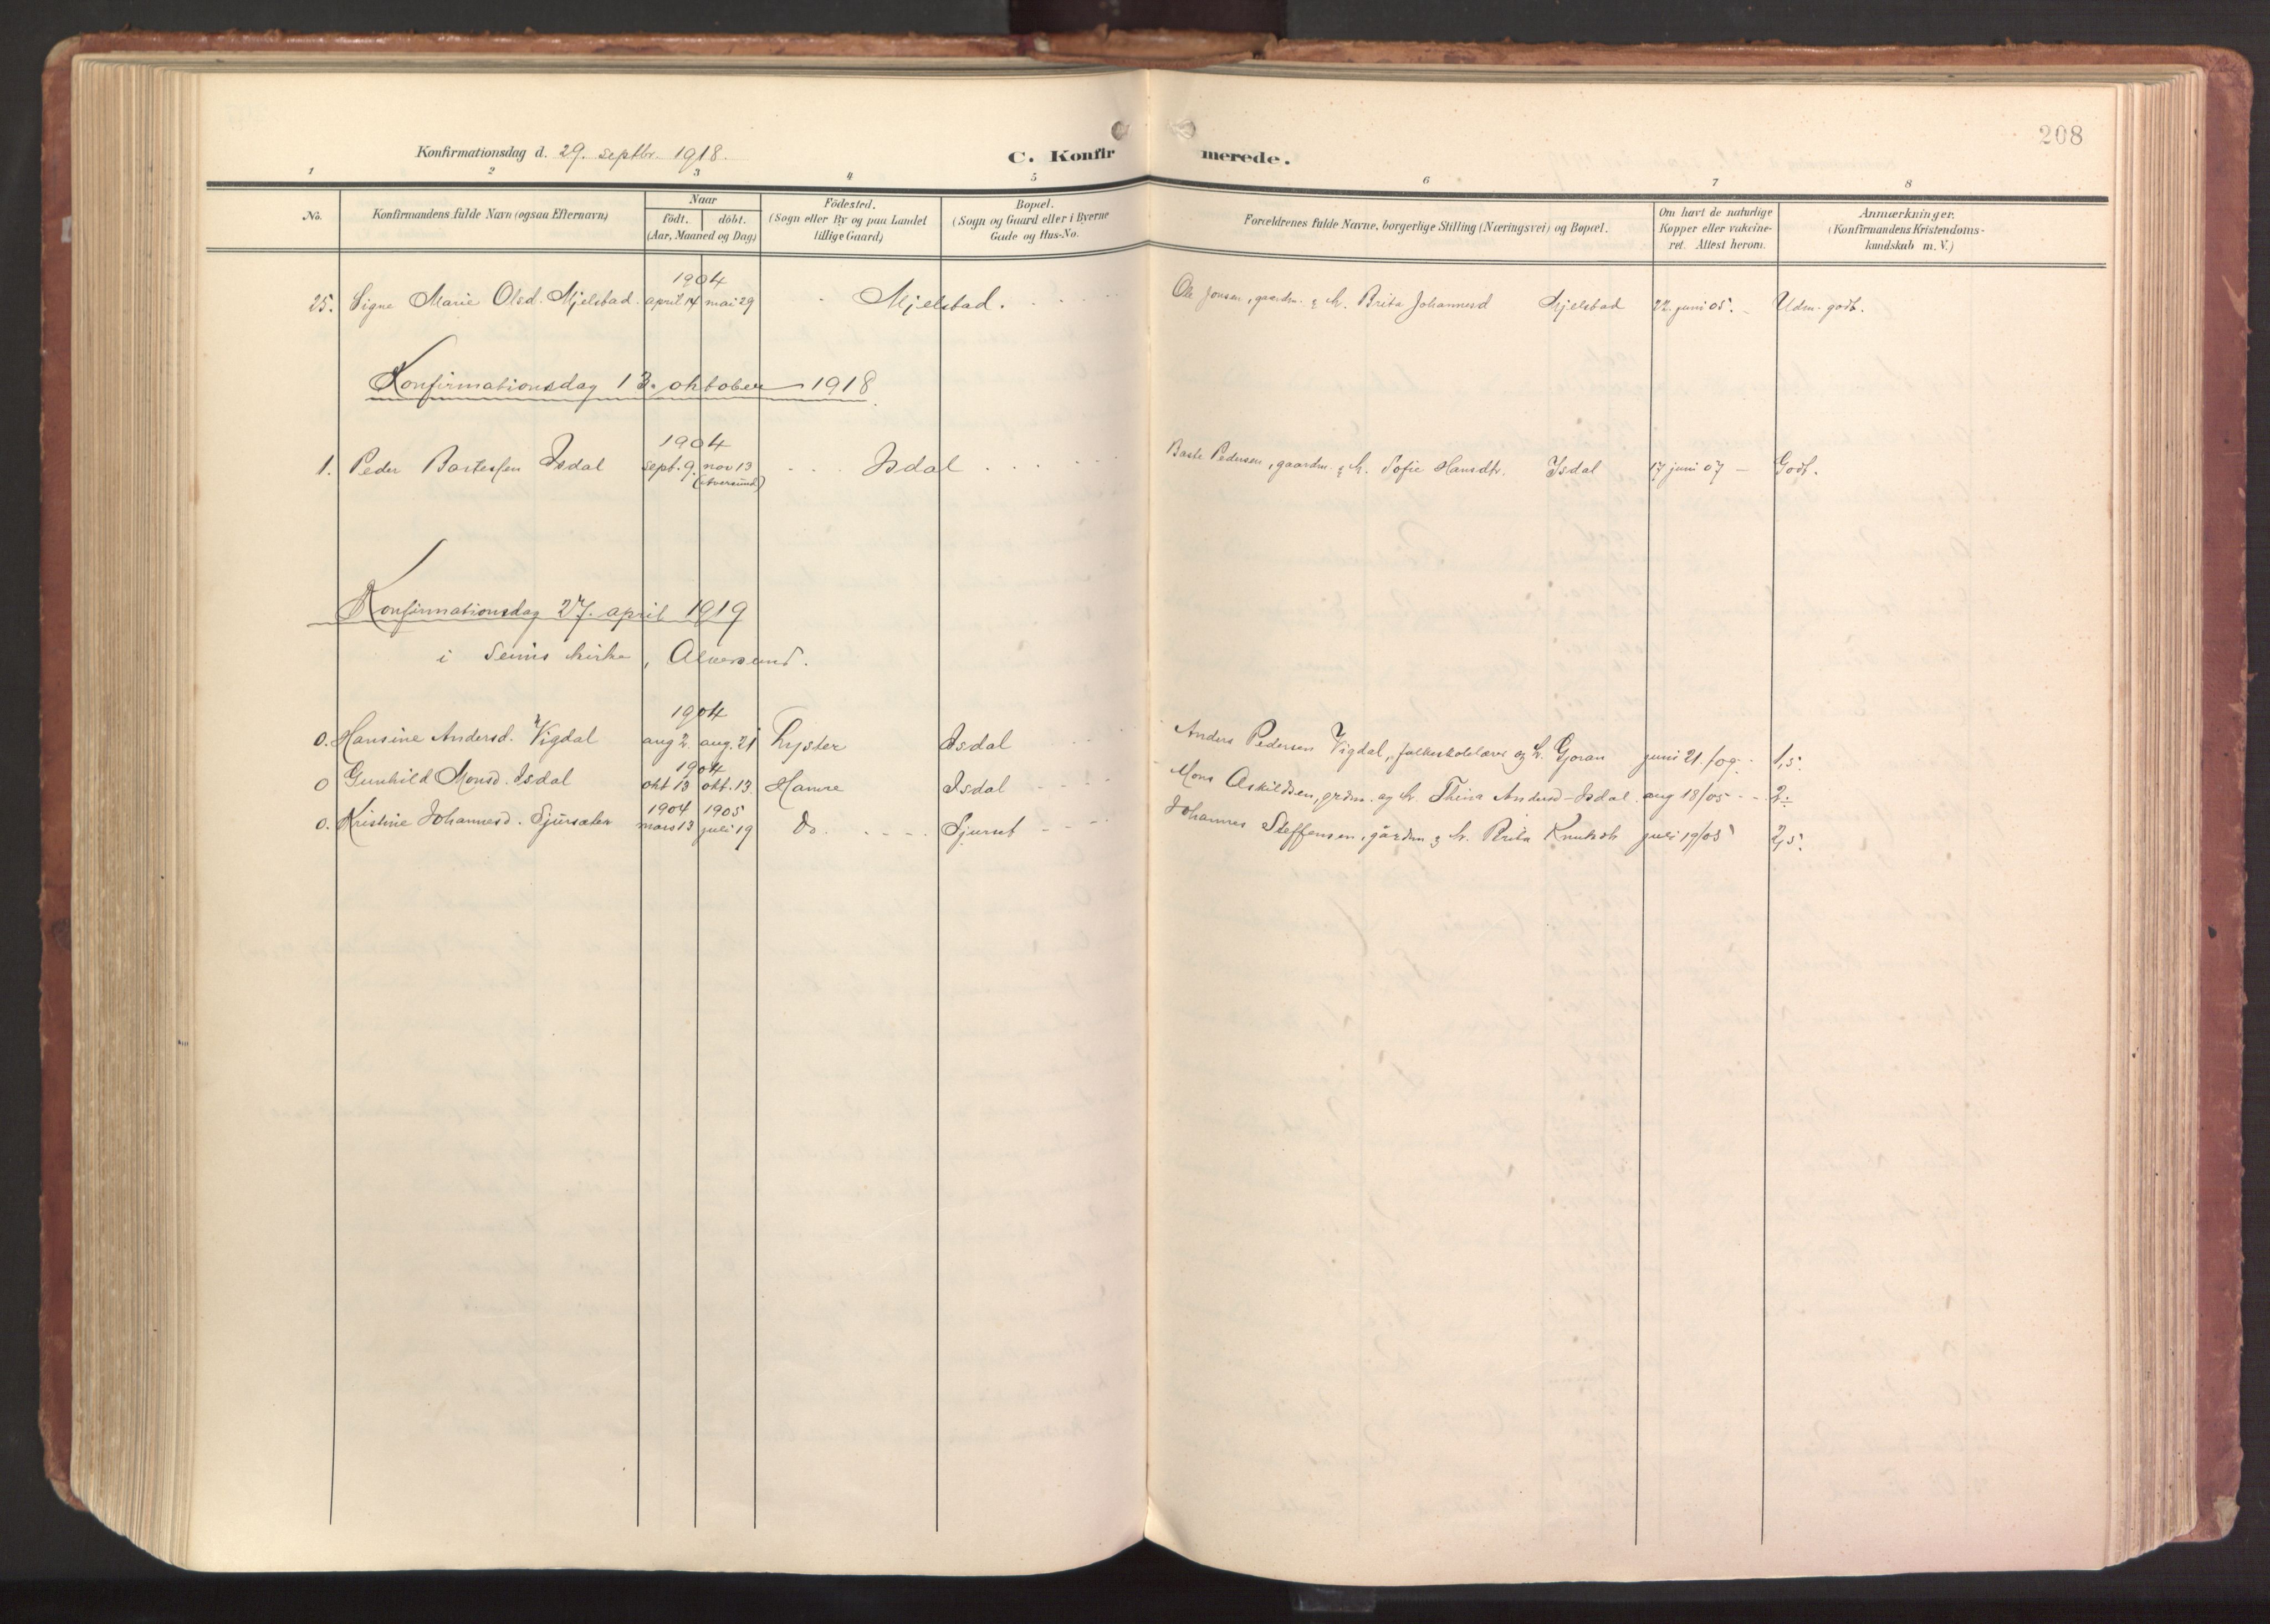 208
Konfirmationsdag d. 29. septbr. 1918.
C. Konfirmerede.
1 2 3 4 5 6 7 8
No.
Konfirmandens fulde Navn (ogsaa Efternavn)
Naar
födt. döbt.
(Aar, Maaned og Dag)
Födested.
(Sogn eller By og paa Landet
tillige Gaard)
Bopæl.
(Sogn og Gaard eller i Byerne
Gade og Hus-No.
Forældrenes fulde Navne, borgerlige Stilling (Næringsvei) og Bopæl.
Om havt de naturlige
Kopper eller vakcine-
ret. Attest herom.
Anmærkninger.
(Konfirmandens Kristendoms-
kundskab m. V.)
1904
25. Signe Marie Olsd. Mjelstad. april 14 mai 29 Mjelstad. Ole Jonsen, gaardm. & h. Brita Johannesd Mjelstad 22. juni 05. Udm. godt.
Konfirmationsdag 13. oktober 1918
1904
1. Peder Bastessen Isdal sept. 9. nov 13 Isdal Baste Pedersen, gaardm. & h. Sofie Hansdtr. Isdal 17 juni 07 Godt.
(Alversund)
Konfirmationsdag 27. april 1919
i Seims kirke, Alversund.
1904
0. Hansine Andersd. Vigdal aug 2. aug. 21 Lyster Isdal Anders Pedersen Vigdal, folkeskolelærer og h. Gjoran juni 21./09. 1,5.
1904
0 Gunhild Monsd. Isdal okt 13 okt. 13. Hamre Isdal Mons Askildsen, grdm. og h. Thina Andersd - Isdal. aug 18/05 2÷
1904 1905
0. Kristine Johannesd. Sjursæter mars 13 juli 19 do. Sjurset Johannes Steffensen, gårdm & h. Brita Knutsdt. juli 19/05 2,5.